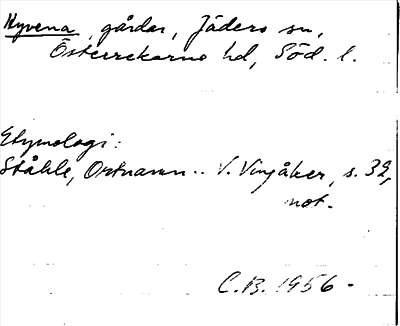 Hyvena, gårdar, Jäders sn,
Österrekarne hd, Söd. l.
Etymologi:
Ståhle, Ortnamn .. V. Vingåker, s. 32,
not.
C.B. 1956.